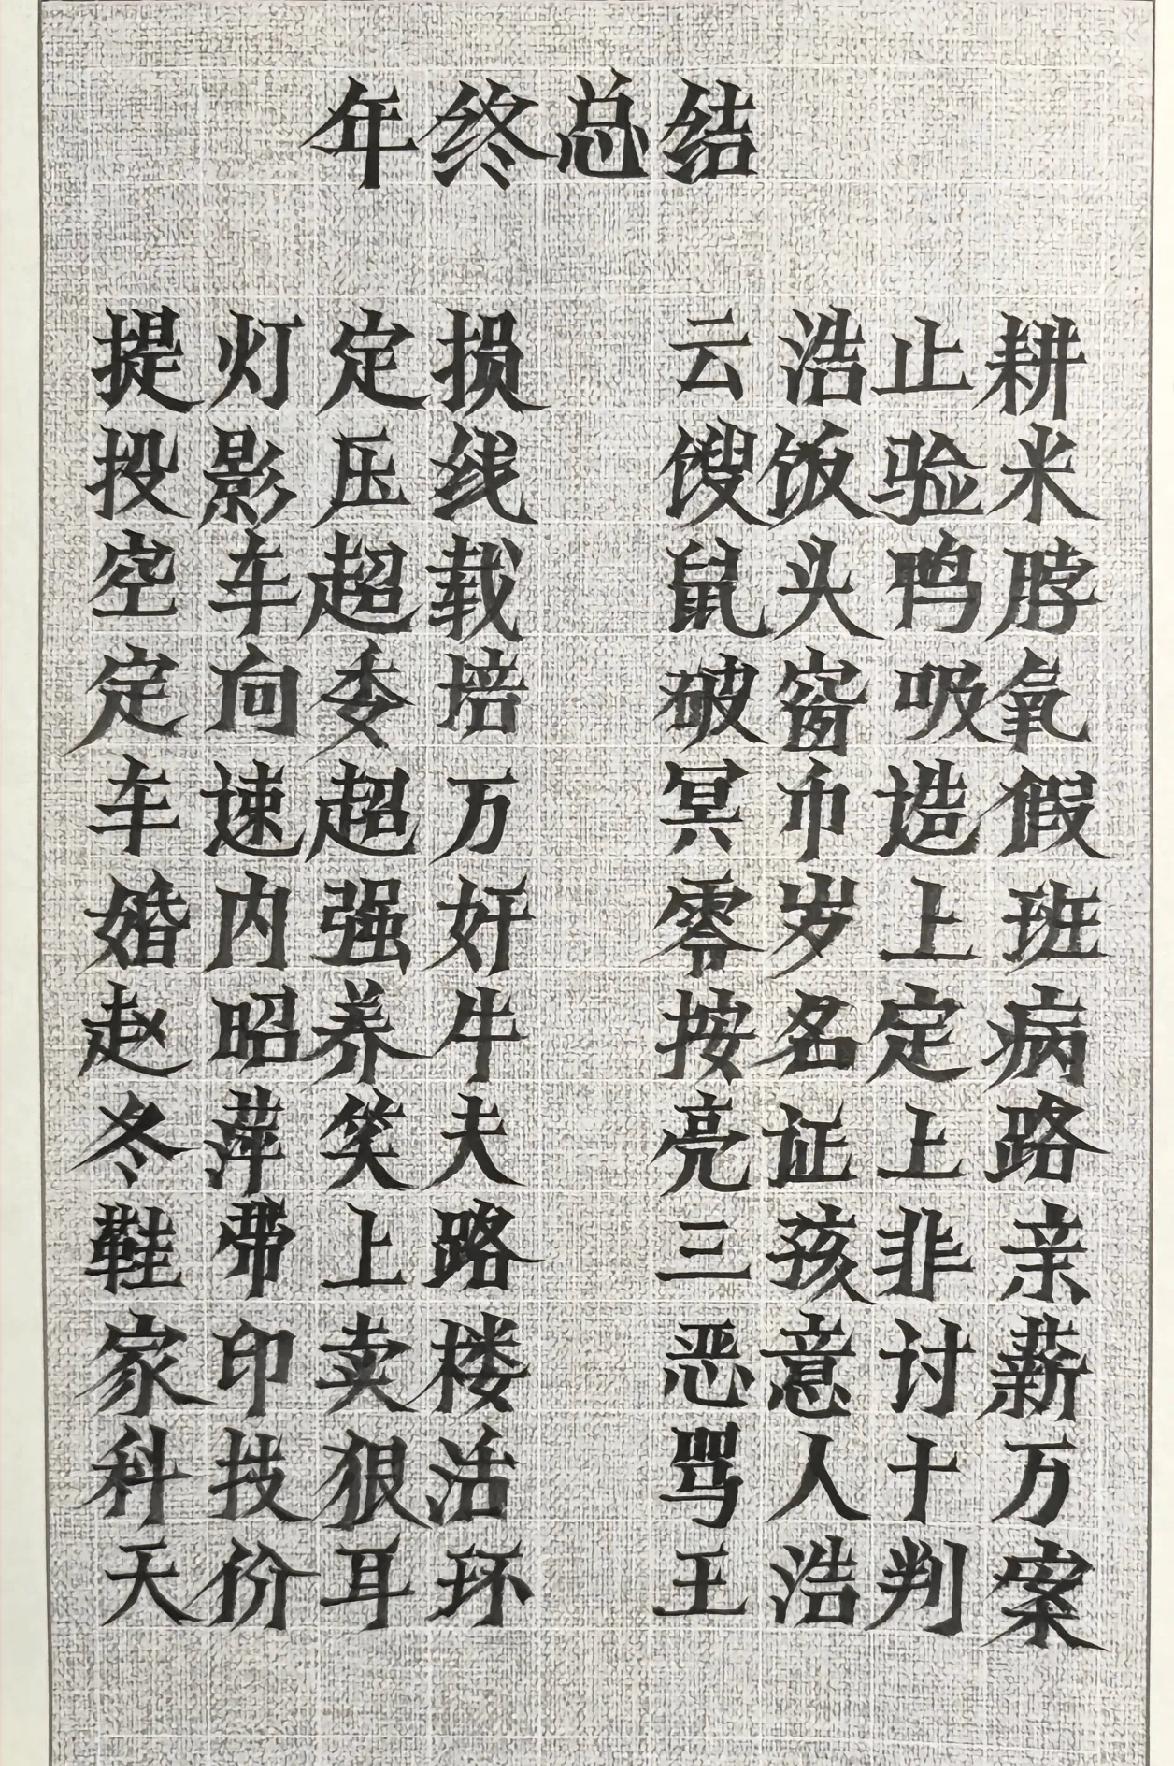 年终总结
提灯定损 云浩止耕
投影压线 馊饭验米
空车超载 鼠头鸭脖
定向委培 破窗吸氧
车速超万 冥币造假
婚内强奸 零岁上班
赵昭养牛 按名定病
冬萍笑夫 亮证上路
鞋带上路 三孩非亲
家印卖楼 恶意讨薪
科技狠活 骂人十万
天价耳环 王浩判案